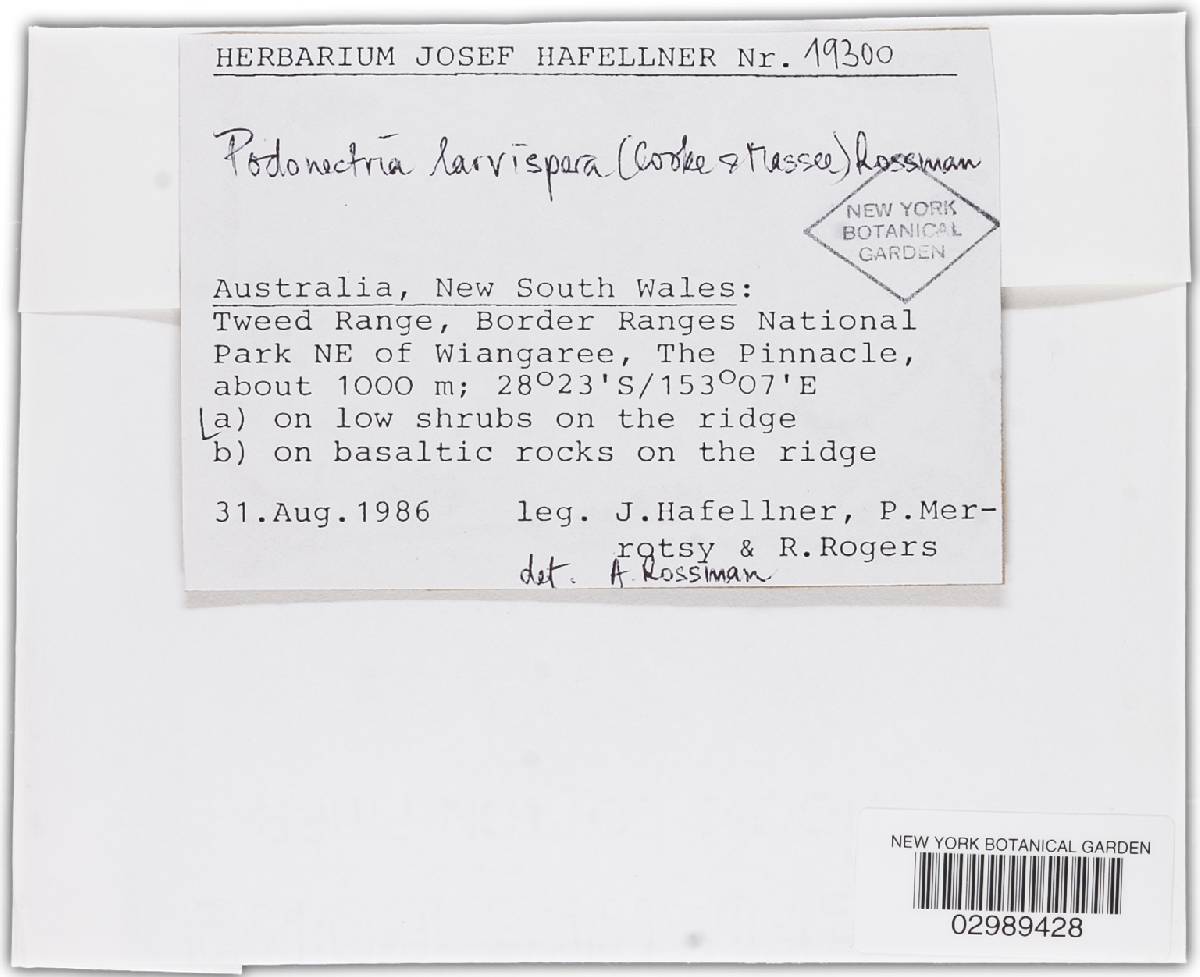 HERBARIUM JOSEF HAFELLNER Nr. 19300
Podonectria larvispora (Cooke & Massee) Rossman
NEW YORK
BOTANICAL
GARDEN
Australia, New South Wales:
Tweed Range, Border Ranges National
Park NE of Wiangaree, The Pinnacle,
about 1000 m; 28°23'S/153°07'E
a) on low shrubs on the ridge
b) on basaltic rocks on the ridge
31.Aug.1986 leg. J.Hafellner, P.Mer-
rotsy & R.Rogers
det. A. Rossman
NEW YORK BOTANICAL GARDEN
02989428